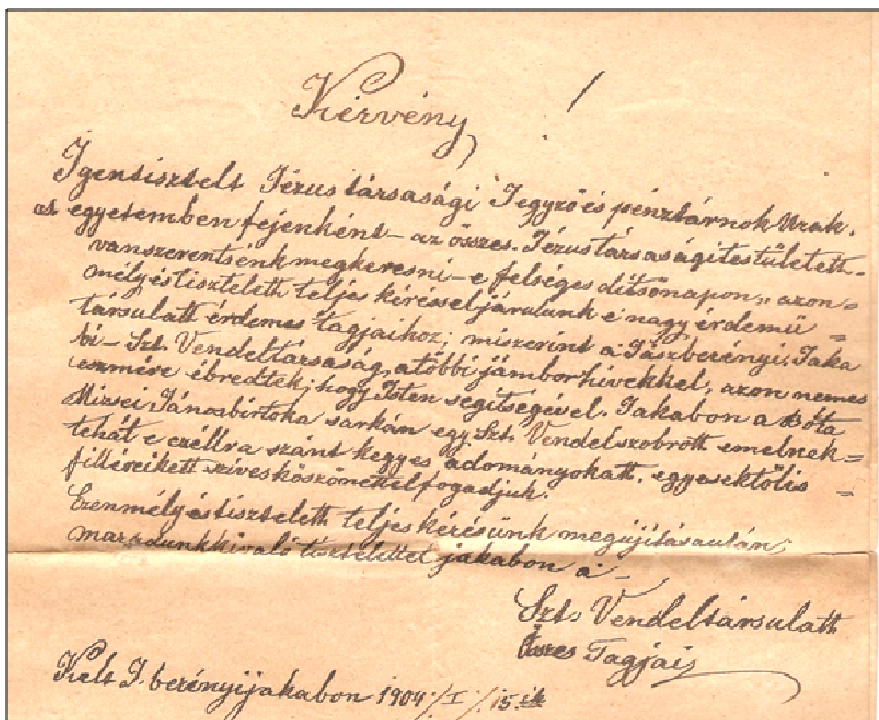 Kérvény !
Igentisztelt Jézus társasági Jegyző és pénztárnok Urak.
az egyetemben fejenként – az összes. Jézus társasági testülett =
vanszerentsénk megkeresni – e felséges ditső napon„ azon =
mély és tiszteleth teljes kérésseljárulunk e nagy érdemü =
társulatt érdemes tagjaihoz; miszerint a Jászberényi, Jaka
bi – Szt. Vendeltársaság, atöbbi jámborhivekkel, azon nemes
eszmére ébredtek; hogy Isten segitségével. Jakabon a Bóta
Mizsei Jánosbirtoka sarkán egy Szt. Vendelszobrott emelnek =
tehát e czéllra szánt kegyes adományokatt. egyesektőlis =
filléreikett szívesköszönettelfogadjuk.
Ezenmély és tiszteleth teljes kérésünk megújításaután;
maradunkkiváló tisztelettel jakabon a –
Szt. Vendeltársulatt
Össes Tagjai
Kelt J. berényijakabon 1904./I./15.ik